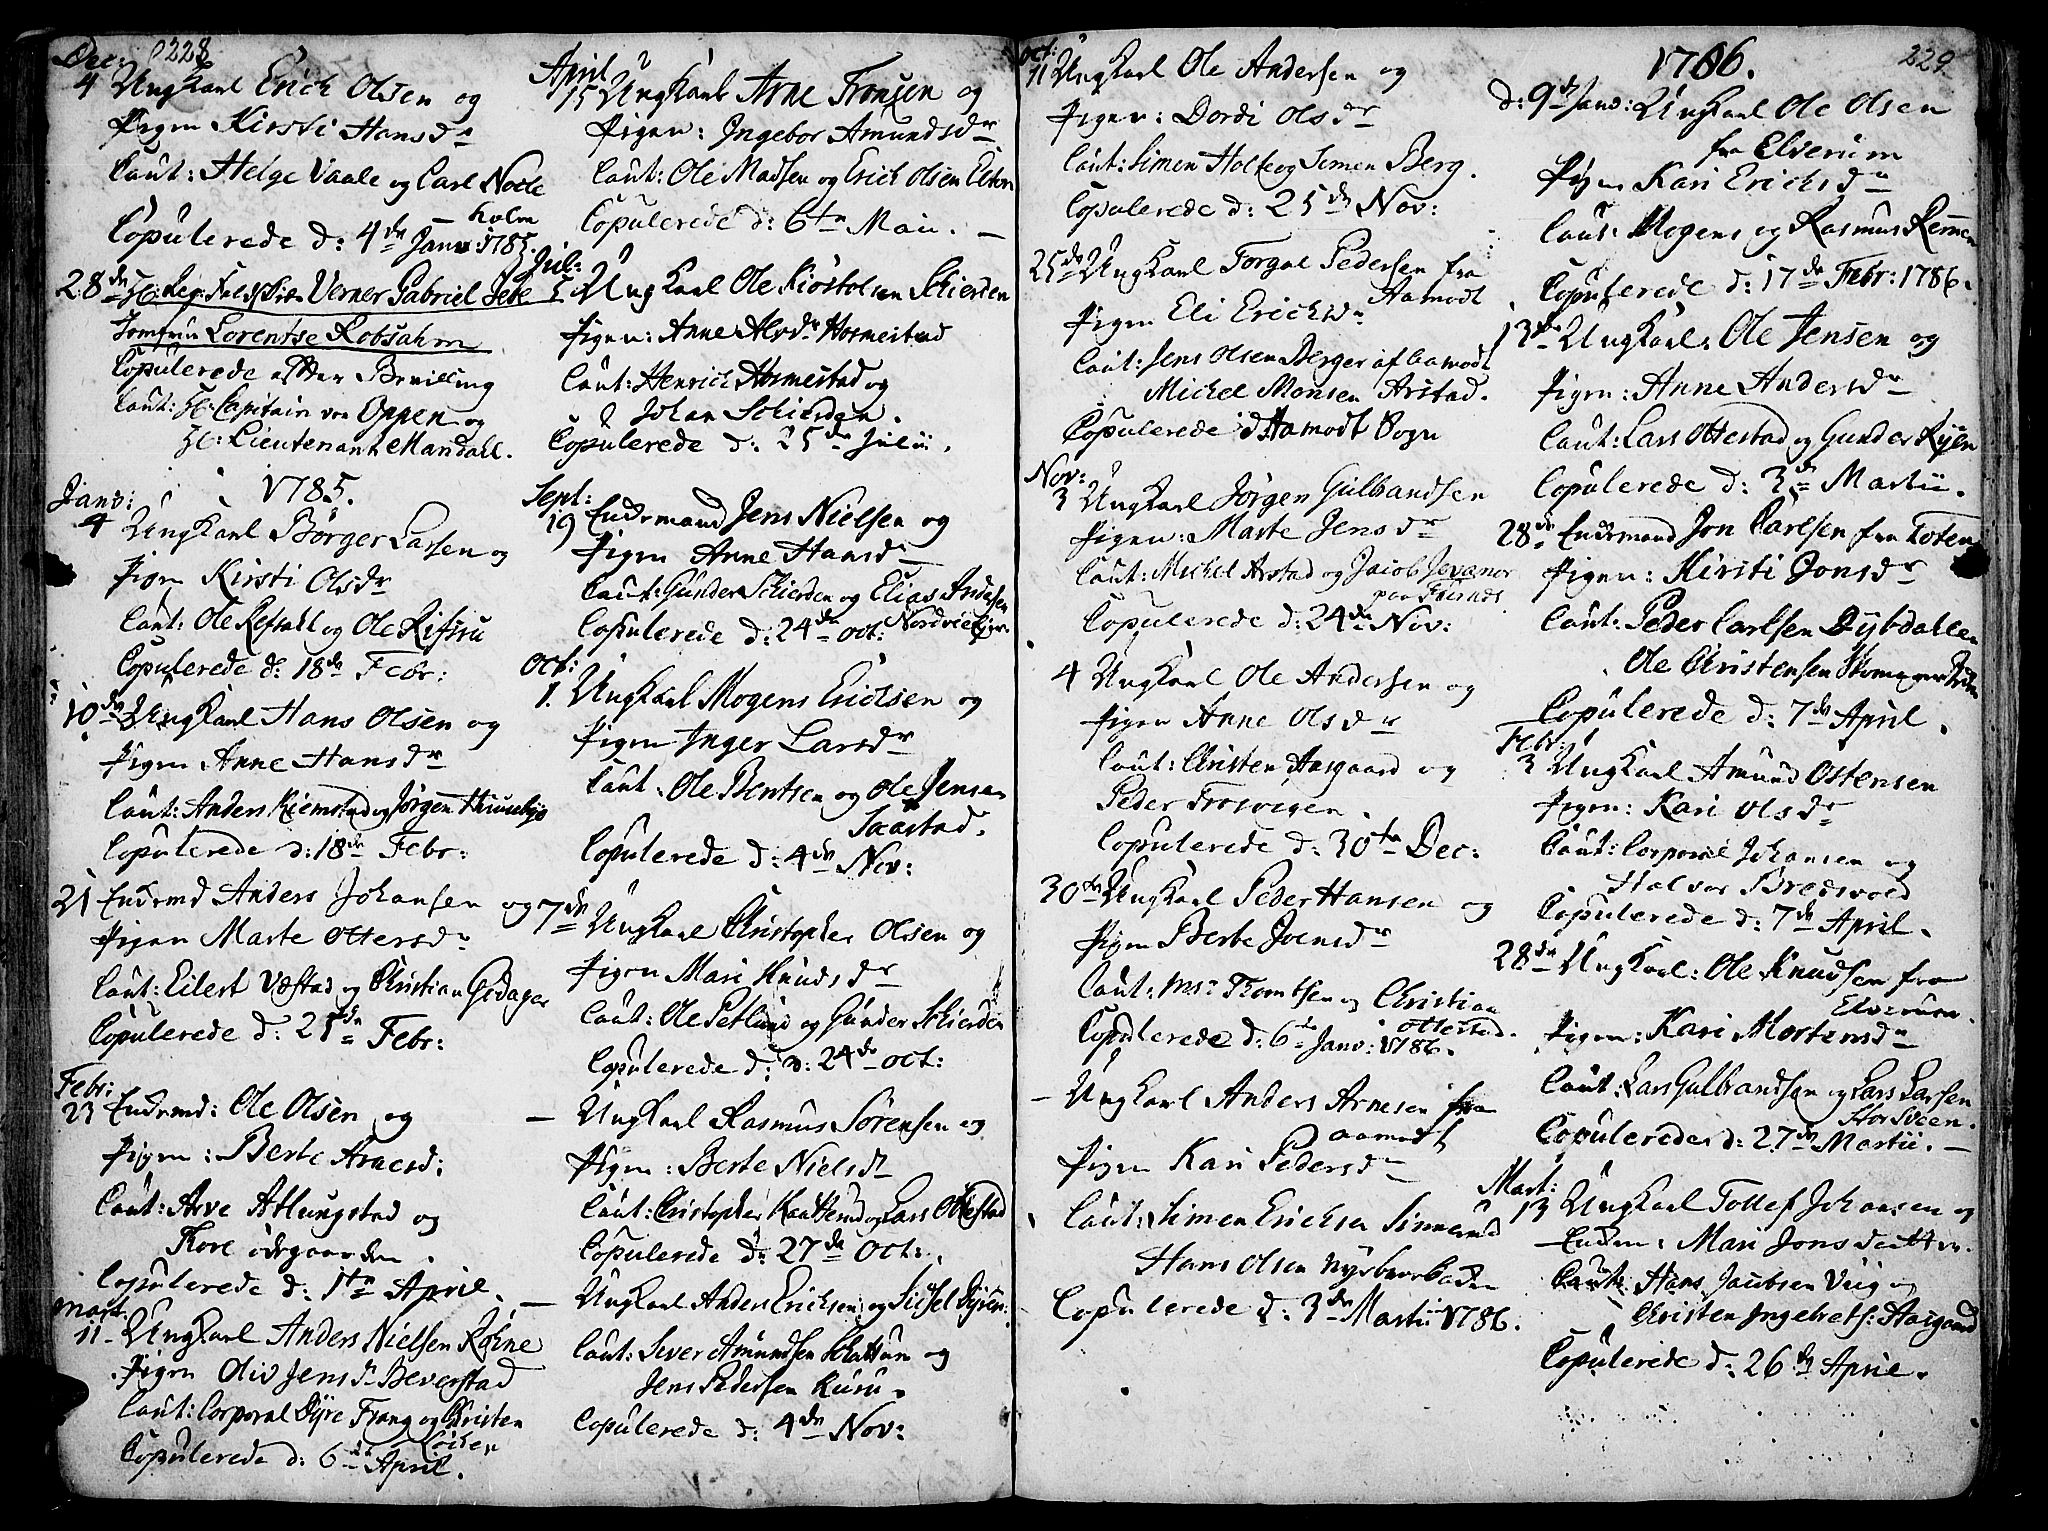 Dec: 228
4 Ungkarl Erich Olsen og
Pigen Kirsti Hansdr
Caut: Helge Vaale og Carl Nocle
holm
Copulerede d: 4de Janv: 1785.
28de Hr: Verner Gabriel Sebe
Jomfru Lorentse Robsahm
Copulerede efter Bevilling
Caut: Hr: Capitain von Oppen og
Hr: Lieutenant Mandahl.
1785.
Janv:
4 Ungkarl Börger Larsen og
Pigen Kirsti Olsdr
Caut: Ole Refsahl og Ole Rifsru
Copulerede d: 18de Febr:
10de Ungkarl Hans Olsen og
Pigen Anne Hansdr
Caut: Anders Kiemstad og Jörgen
Copulerede d: 18de Febr:
21 Enckemd Anders Johansen og
Pigen Marte Ottersdr
Caut: Eilert Væstad og Christian Gidager
Copulerede d: 25de Febr:
Febr:
23 Enckemd: Ole Olsen og
Pigen: Berte Arnesd:
Caut: Arve Atlungstad og
Tkore ödegaarden.
Copulerede d: 1te April.
Mart:
11 Ungkarl Anders Nielsen Röhne
Pigen Oliv Jensdr Beverstad
Caut: Corporal Dyre Frang og Christen
Löcken
Copulerede d: 6te April.
April
15 Ungkarl Arne Tronsen og
Pigen: Ingebor Amundsdr
Caut: Ole Madsen og Erich Olsen Elton
Copulerede d: 6te Maii.
Jul:
5 Ungkarl Ole Kiöstolsen Schierden
Pigen: Anne Alvdr Hormestad
Caut: Henrich Hormestad og
Johan Schierden.
Copulerede d: 25de Julii.
Sept:
19 Enckemand Jens Nielsen og
Pigen Anne Hansdr
Caut: Gunder Schierden og Elias Andersen
Copulerede d: 24de Oct:
Oct:
1. Ungkarl Mogens Erichsen og
Pigen Inger Larsdr
Caut: Ole Bentsen og Ole Jensen
Saastad.
Copulerede d: 4de Nov:
7de Ungkarl Christopher Olsen og
Pigen Mari Knudsdr
Caut: Ole Petlund og Gunder Schierden
Copulerede d: 24de Oct:
— Ungkarl Rasmus Sörensen og
Pigen: Berte Nielsdr
Caut: Christopher Kaatterud og Lars Ottestad
Copulerede d: 27de Oct:
— Ungkarl Anders Erichsen og Sidsel
Caut: Sever Amundsen Schattum og
Jens Pedersen Kuru.
Copulerede d: 4de Nov:
Oct:
11 Ungkarl Ole Andersen og
Pigen: Dordi Olsdr
Caut: Simen Holte og Simen Berg.
Copulerede d: 25de Nov:
25de Ungkarl Torgal Pedersen fra
Aamodt
Pigen Eli Erichsdr
Caut: Jens Olsen Berger af Aamodt
Michel Monsen Arstad.
Copulerede i Aamodt Sogn
Nov:
3 Ungkarl Jörgen Gulbrandsen
Pigen: Marte Jensdr
Caut: Michel Arstad og Jacob Jevanor
paa
Copulerede d: 24de Nov:
4 Ungkarl Ole Andersen og
Pigen Anne Olsdr
Caut: Christen Aasgaard og
Peder Frosvigen.
Copulerede d: 30te Dec:
30te Ungkarl Peder Hansen og
Pigen Berte Joensdr
Caut: Msr Thomtsen og Christian
Ottestad.
Copulerede d: 6te Janv: 1786.
— Ungkarl Anders Arnesen fra
Aamodt
Pigen Kari Pedersdr
Caut: Simen Erichsen Sinnerud
Hans Olsen
Copulerede d: 3de Martii 1786.
1786. 229
d: 9de Janv: Ungkarl Ole Olsen
fra Elverum
Pigen Kari Erichsdr
Caut: Mogens og Rasmus Remmen
Copulerede d: 17de Febr: 1786.
13de Ungkarl: Ole Jensen og
Pigen: Anne Andersdr
Caut: Lars Ottestad og Gunder Ryen
Copulerede d: 3de Martii.
28de Enckemand Jon Carlsen fra Toten
Pigen: Kirsti Jonsdr
Caut: Peder Carlsen Dybdallen
Ole Christensen
Copulerede d: 7de April.
Febr:
3 Ungkarl Amund Ostensen
Pigen: Kari Olsdr
Caut: Corporal Johansen og
Halvor Bredsvold
Copulerede d: 7de April.
28de Ungkarl: Ole Knudsen fra
Elverum.
Pigen: Kari Mortensdr
Caut: Lars Gulbrandsen og Lars Larsen
Storsveen.
Copulerede d: 27de Martii.
Mart:
13 Ungkarl Tollef Johansen og
Encken: Mari Jonsdatter.
Caut: Hans Jacobsen Viig og
Christen Ingebrets: Aasgaard
Copulerede d: 26de April.